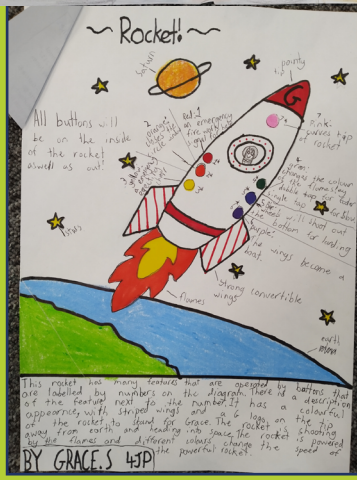 ~Rocket!~
Saturn
pointy
tip
G
All buttons will
be on the inside
of the rocket
aswell as out!
2
orange:
red: 1
an emergency
fire
7
Pink:
curves tip
of rocket
4
green:
changes the colour
of the flames
double tap for
single tap for
5 blue:
wheels will shoot out
the bottom for landing
purple:
the wings become a
boat.
stars
strong convertible
wings
flames
earth
This rocket has many features that are operated by buttons that
are labelled by numbers on the diagram. There is a description
of the feature next to the number. It has a colourful
appearnce, with striped wings and a G logo on the tip
of the rocket to stand for Grace. The rocket is shooting
away from earth and heading into space. The rocket is powered
by the flames and different colours change the speed of
the powerful rocket.
BY GRACE.S 4JP